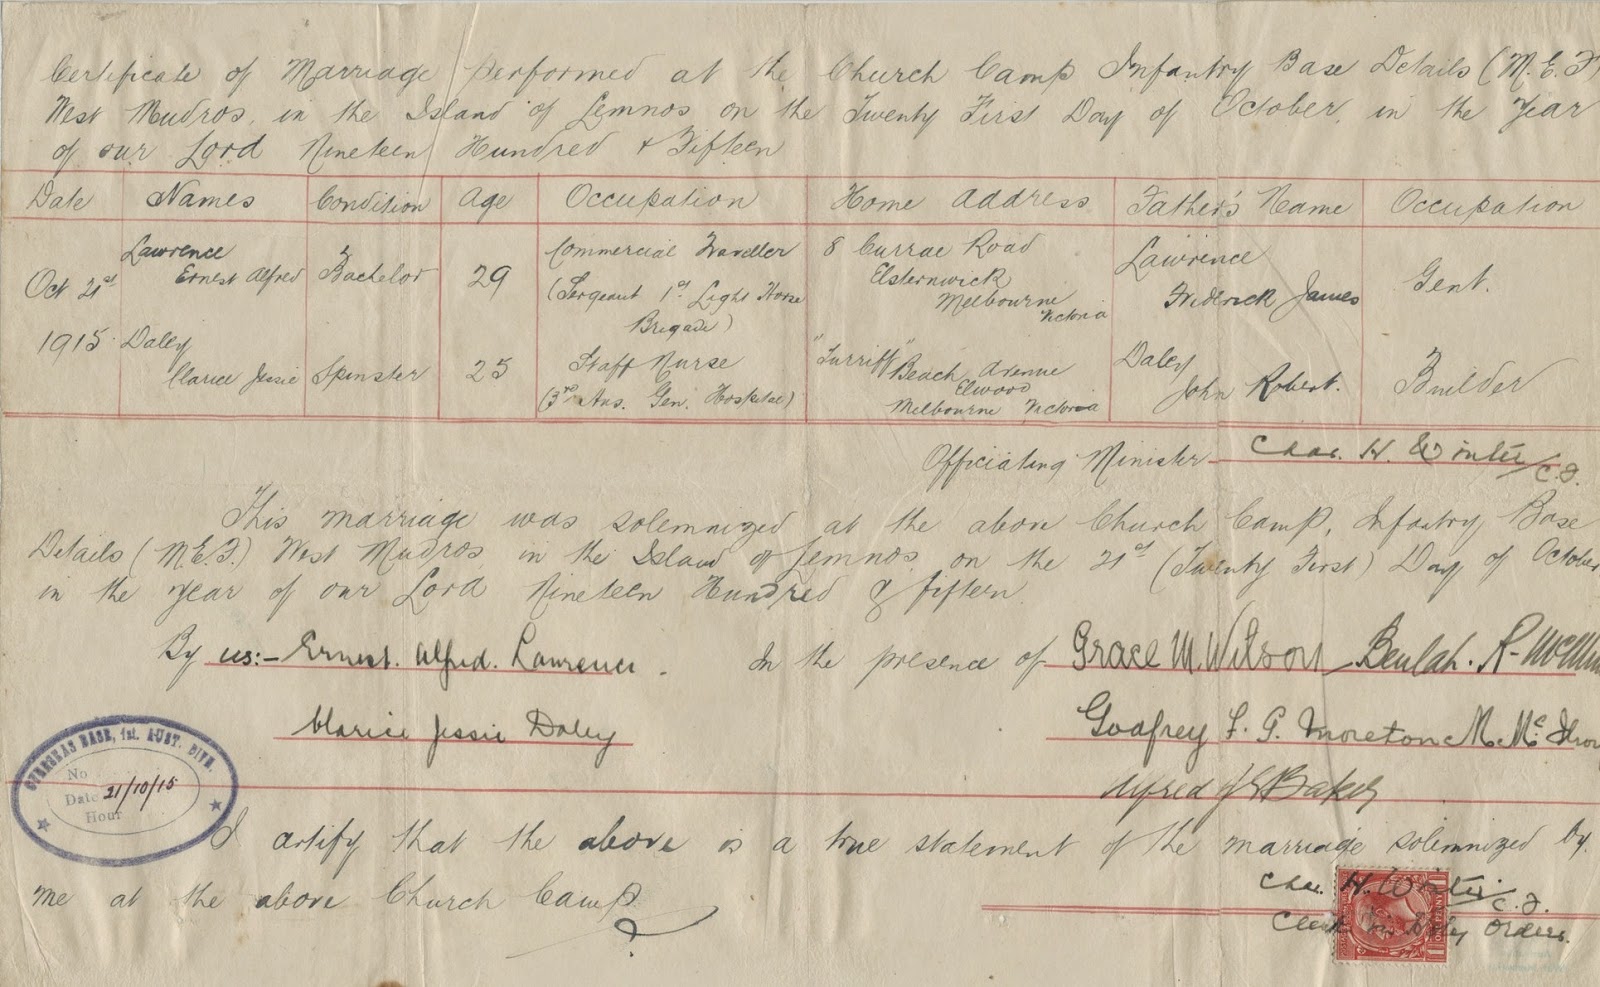 Certificate of Marriage performed at the Church Camp Infantry Base Details (M.E.F)
West Mudros, in the Island of Lemnos on the Twenty First Day of October, in the Year
of our Lord Nineteen Hundred & Fifteen
Date Names Condition Age Occupation Home Address Father's Name Occupation
Oct 21st 1915
Lawrence
Ernest Alfred
Bachelor
29
Commercial Traveller
(Sergeant 1st Light Horse
Brigade)
8 Currae Road
Elsternwick
Melbourne
Victoria
Lawrence
Frederick James
Gent.
Daley
Clarice Jessie
Spinster
25
Staff Nurse
(3rd Aus. Gen. Hospital)
"Turriff" Beach Avenue
Elwood
Melbourne Victoria
Daley
John Robert.
Builder
Officiating Minister - Chas. H. Winter / C.F.
This marriage was solemnized at the above Church Camp, Infantry Base
Details (M.E.F.) West Mudros, in the Island of Lemnos, on the 21st (Twenty First) Day of October
in the Year of our Lord Nineteen Hundred & fifteen.
By us:- Ernest. Alfred. Lawrence. In the presence of Grace M. Wilson Beulah. R-
Clarice Jessie Daley Godfrey F. G. Moreton M.
Alfred Baker
OVERSEAS BASE, 1st. AUST. DIVN.
No
Date 21/10/15
Hour
I certify that the above is a true statement of the marriage solemnized by
me at the above Church Camp
Chas. H. Winter / C.F.
Clerk in Holy Orders.
ONE PENNY